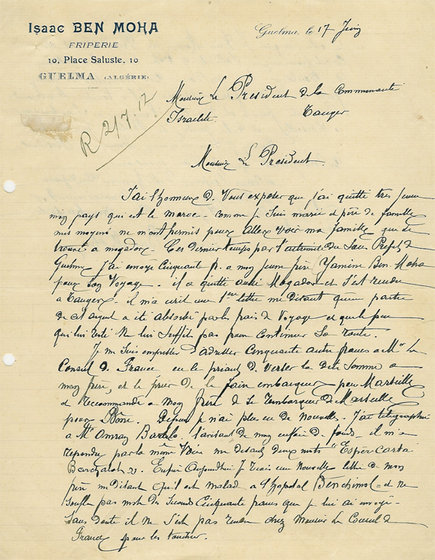 Isaac BEN MOHA
FRIPERIE
10, Place Saluste, 10
GUELMA (ALGÉRIE)
Guelma, le 17 Juin
R 217.12
Monsieur Le President de la Communauté
Israelite Tanger
Monsieur Le President
J'ai l'honneur d. Vous exposer que j'ai quitté tres jeune
mon pays qui est le maroc. comme je suis marié et père de famille
mes moyens ne m'ont permis pour aller voir ma famille que se
trouve a mogador. Ces dernier temps par l'autorisé du Sous Prefet de
Guelma j'ai envoyé Cinquante fr. a mon jeune frère Yamine Ben Moha
pour son Voyage. il a quitté Mogador et s'est rendu
a Tanger. il m'a écrit une 1er lettre me disant que partie
de l'argent a été absorbé par les frais de Voyage et que le peu
qui lui reste ne lui suffit pas pour Continuer sa route.
Je me suis empressé d'adresser Cinquante autre francs a Mr le
Consul de France en le priant de Verser la dite Somme a
mon frère, et le prier de le faire embarquer pour Marseille
et recommandé a mon frère de s'embarquer de Marseille
pour Bône. Depuis je n'ai plus eu de nouvelle. J'ai telegraphié
a Mr Amray l'avisant de mon enfin d. fond. il m'a
repondu par le même Voie me disant deux mots "Espère Carta
. Enfin Aujourd'hui je recois une nouvelle lettre de mon
frère me disant qu'il est malade a l'hopital Benchimol et ne
souffle pas mot des seconds Cinquante francs que je lui ai envoyé.
Sans doute il ne s'est pas rendu chez Monsieur Le Consul de
France pour les toucher.